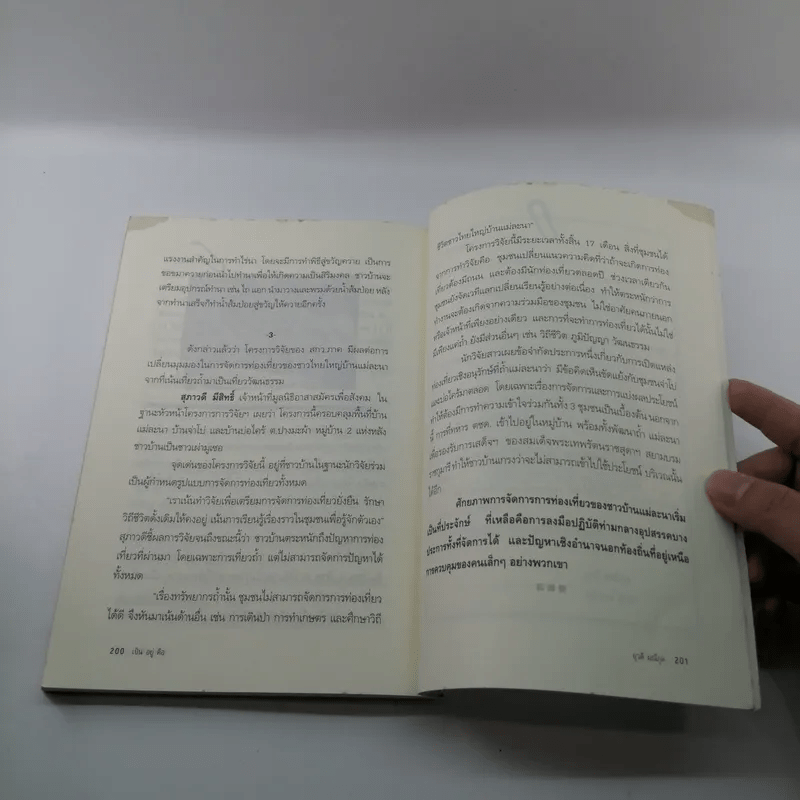 แรงงานสำคัญในการทำไร่นา โดยจะมีการทำพิธีสู่ขวัญควาย เป็นการ
ขอขมาควายก่อนนำไปทำนาเพื่อให้เกิดความเป็นสิริมงคล ชาวบ้านจะ
เตรียมอุปกรณ์ทำนา เช่น ไถ แอก นำมาวางและพรมด้วยน้ำส้มป่อย หลัง
จากทำนาเสร็จก็ทำน้ำส้มป่อยสู่ขวัญให้ควายอีกครั้ง
-3-
ดังกล่าวแล้วว่า โครงการวิจัยของ สกว.ภาค มีผลต่อการ
เปลี่ยนมุมมองในการจัดการท่องเที่ยวของชาวไทยใหญ่บ้านแม่ละนา
จากที่เน้นเที่ยวถ้ำมาเป็นเที่ยววัฒนธรรม
สุภาวดี มีสิทธิ์ เจ้าหน้าที่มูลนิธิอาสาสมัครเพื่อสังคม ใน
ฐานะหัวหน้าโครงการการวิจัยฯ เผยว่า โครงการนี้ครอบคลุมพื้นที่บ้าน
แม่ละนา บ้านจ่าโบ่ และบ้านบ่อไคร้ ต.ปางมะผ้า หมู่บ้าน 2 แห่งหลัง
ชาวบ้านเป็นชาวเผ่ามูเซอ
จุดเด่นของโครงการวิจัยนี้ อยู่ที่ชาวบ้านในฐานะนักวิจัยร่วม
เป็นผู้กำหนดรูปแบบการจัดการท่องเที่ยวทั้งหมด
"เราเน้นทำวิจัยเพื่อเตรียมการจัดการท่องเที่ยวยั่งยืน รักษา
วิถีชีวิตดั้งเดิมให้คงอยู่ เน้นการเรียนรู้เรื่องราวในชุมชนเพื่อรู้จักตัวเอง"
สุภาวดีชี้ผลการวิจัยจนถึงขณะนี้ว่า ชาวบ้านตระหนักถึงปัญหาการท่อง
เที่ยวที่ผ่านมา โดยเฉพาะการเที่ยวถ้ำ แต่ไม่สามารถจัดการปัญหาได้
ทั้งหมด
"เรื่องทรัพยากรถ้ำนั้น ชุมชนไม่สามารถจัดการการท่องเที่ยว
ได้ดี จึงหันมาเน้นด้านอื่น เช่น การเดินป่า การทำเกษตร และศึกษาวิถี
200 เป็น อยู่ คือ
ชีวิตชาวไทยใหญ่บ้านแม่ละนา"
โครงการวิจัยนี้มีระยะเวลาทั้งสิ้น 17 เดือน สิ่งที่ชุมชนได้
จากการทำวิจัยคือ ชุมชนเปลี่ยนแนวความคิดที่ว่าถ้าจะเกิดการท่อง
เที่ยวต้องมีถนน และต้องมีนักท่องเที่ยวตลอดปี ช่วงเวลาเดียวกัน
ชุมชนยังจัดเวทีแลกเปลี่ยนเรียนรู้อย่างต่อเนื่อง ทำให้ตระหนักว่าการ
ทำงานจะต้องเกิดจากความร่วมมือของชุมชน ไม่ใช่อาศัยคนภายนอก
หรือเจ้าหน้าที่เพียงอย่างเดียว และการที่จะทำการท่องเที่ยวได้นั้นไม่ใช่
มีเพียงแค่ถ้ำ ยังมีส่วนอื่นๆ เช่น วิถีชีวิต ภูมิปัญญา วัฒนธรรม
นักวิจัยสาวเผยข้อจำกัดประการหนึ่งเกี่ยวกับการเปิดแหล่ง
ท่องเที่ยวเชิงอนุรักษ์ที่ถ้ำแม่ละนาว่า มีข้อคิดเห็นขัดแย้งกับชุมชนจ่าโบ่
และบ่อไคร้มาตลอด โดยเฉพาะเรื่องการจัดการและการแบ่งผลประโยชน์
ทำให้ต้องมีการทำความเข้าใจร่วมกันทั้ง 3 ชุมชนเป็นเบื้องต้น นอกจาก
นี้ การที่ทหาร ตชด. เข้าไปอยู่ในหมู่บ้าน พร้อมทั้งพัฒนาถ้ำ แม่ละนา
เพื่อรองรับการเสด็จฯ ของสมเด็จพระเทพรัตนราชสุดาฯ สยามบรม
ราชกุมารี ทำให้ชาวบ้านเกรงว่าจะไม่สามารถเข้าไปใช้ประโยชน์ บริเวณนั้น
ได้อีก
ศักยภาพการจัดการการท่องเที่ยวของชาวบ้านแม่ละนาเริ่ม
เป็นที่ประจักษ์ ที่เหลือคือการลงมือปฏิบัติท่ามกลางอุปสรรคบาง
ประการทั้งที่จัดการได้ และปัญหาเชิงอำนาจนอกท้องถิ่นที่อยู่เหนือ
การควบคุมของคนเล็กๆ อย่างพวกเขา
201